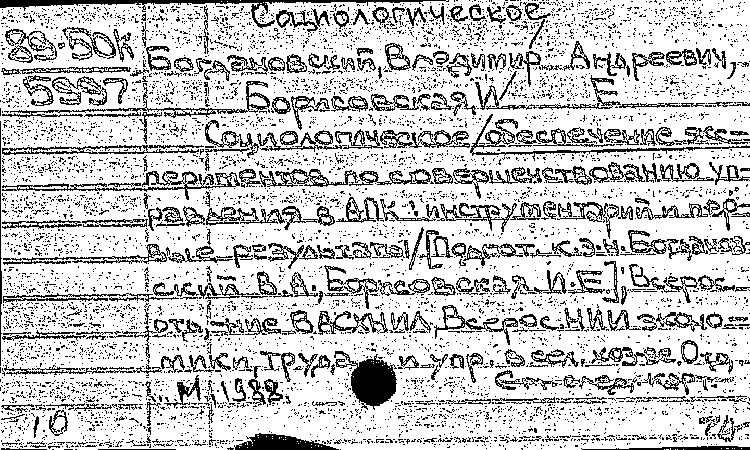 Социологическое
89-50К
Богдановский, Владимир Андреевич,
5997
Борисовская, И Е
Социологическое/обеспечение экс-
периментов по совершенствованию уп-
равления в АПК: инструментарий и пер-
вые результаты/[Подгот. к.э.н. Богданов-
ский В.А., Борисовская И.Е]; Всерос.
отд,-ние ВАСХНИЛ, Всерос. НИИ эконо-
мики, труда и упр. в сел. хоз-ве. Отд.
М., 1988. См. след. карт
10